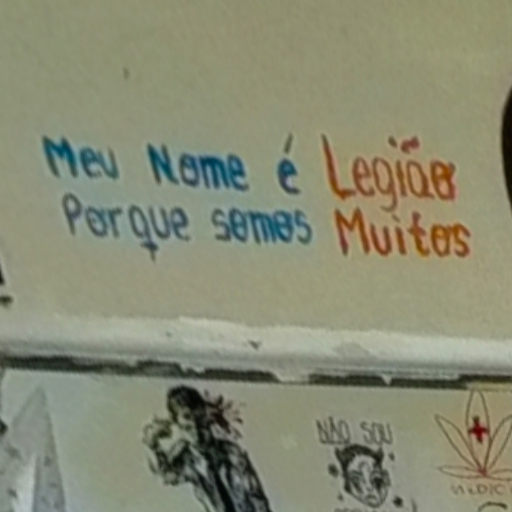 Meu Nome é Legião
Porque somos Muitos
NÃO SOU